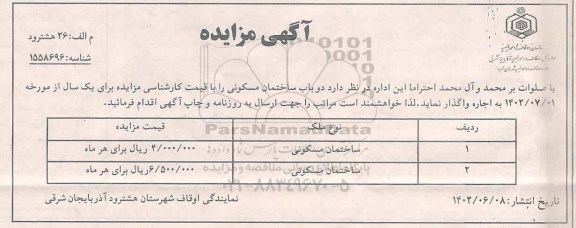 آگهی مزایده
م الف: ۲۶ هشترود
شناسه: ۱۵۵۸۶۹۶
با صلوات بر محمد و آل محمد احتراما این اداره در نظر دارد دو باب ساختمان مسکونی را با قیمت کارشناسی مزایده برای یک سال از مورخه
۱۴۰۲/۰۷/۰۱ به اجاره واگذار نماید. لذا خواهشمند است مراتب را جهت ارسال به روزنامه و چاپ آگهی اقدام فرمائید.
ردیف نوع ملک قیمت مزایده
۱ ساختمان مسکونی ۴/۰۰۰/۰۰۰ ریال برای هر ماه
۲ ساختمان مسکونی ۶/۵۰۰/۰۰۰ ریال برای هر ماه
تاریخ انتشار: ۱۴۰۲/۰۶/۰۸ نمایندگی اوقاف شهرستان هشترود آذربایجان شرقی
ParsNamadData
۰۲۱-۸۸۳۴۹۶۷۰-۵